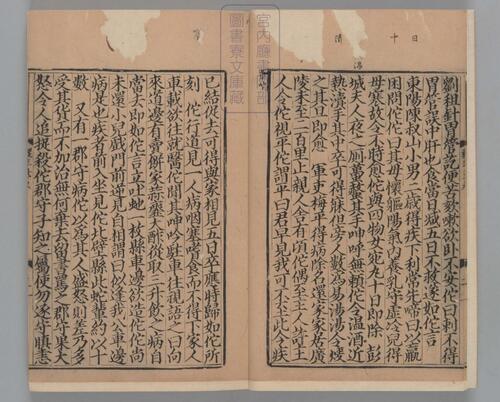 劉租針胃管訖便苦欬嗽欲卧不安佗曰刺不得
胃管誤中肝也食當日減五日不救遂如佗言
東陽陳叔山小男二歲得疾下利常先啼日以羸
困問佗佗曰其母懷軀陽氣內養乳中虛冷兒得
母寒故令不時愈佗與四物女宛丸十日即除 彭
城夫人夜之厠蠆螫其手呻呼無賴佗令溫湯近
熱漬手其中卒可得寐但旁人數為易湯湯令煖
之其旦即愈 軍吏梅平得病除名還家家居廣
陵未至二百里止親人舍有頃佗偶至主人許主
人令佗視平佗謂平曰君早見我可不至此今疾
宮內廳書陵部
圖書寮文庫藏
已結促去可得與家相見五日卒應時歸如佗所
刻 佗行道見一人病咽塞嗜食而不得下家人
車載欲往就醫佗聞其呻吟駐車往視語之曰向
來道邊有賣餅家蒜韲大酢從取三升飲之病自
當去即如佗言立吐虵一枚縣車邊欲造佗佗尚
未還小兒戲門前逆見自相謂曰似逢我公車邊
病是也疾者前入坐見佗北壁縣此虵輩約以十
數 又有一郡守病佗以為其人盛怒則差乃多
受其貨而不加治無何棄去留書罵之郡守果大
怒令人追捉殺佗郡守子知之屬使勿逐守瞋恚